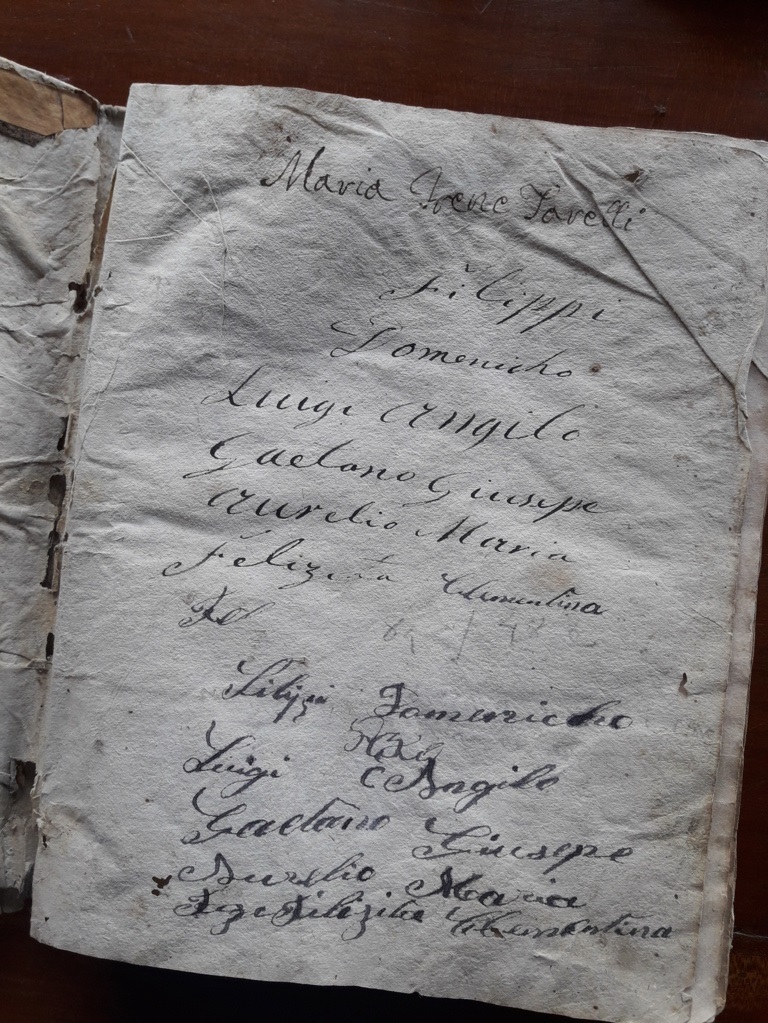 Maria Irene Favelli
Filippi
Domenicho
Luigi Angilo
Gaetano Giusepe
Aurelio Maria
Felizita Clementina
Fel
Filippi Domenicho
Luigi Angilo
Gaetano Giusepe
Aurelio Maria
Filizita Clementina